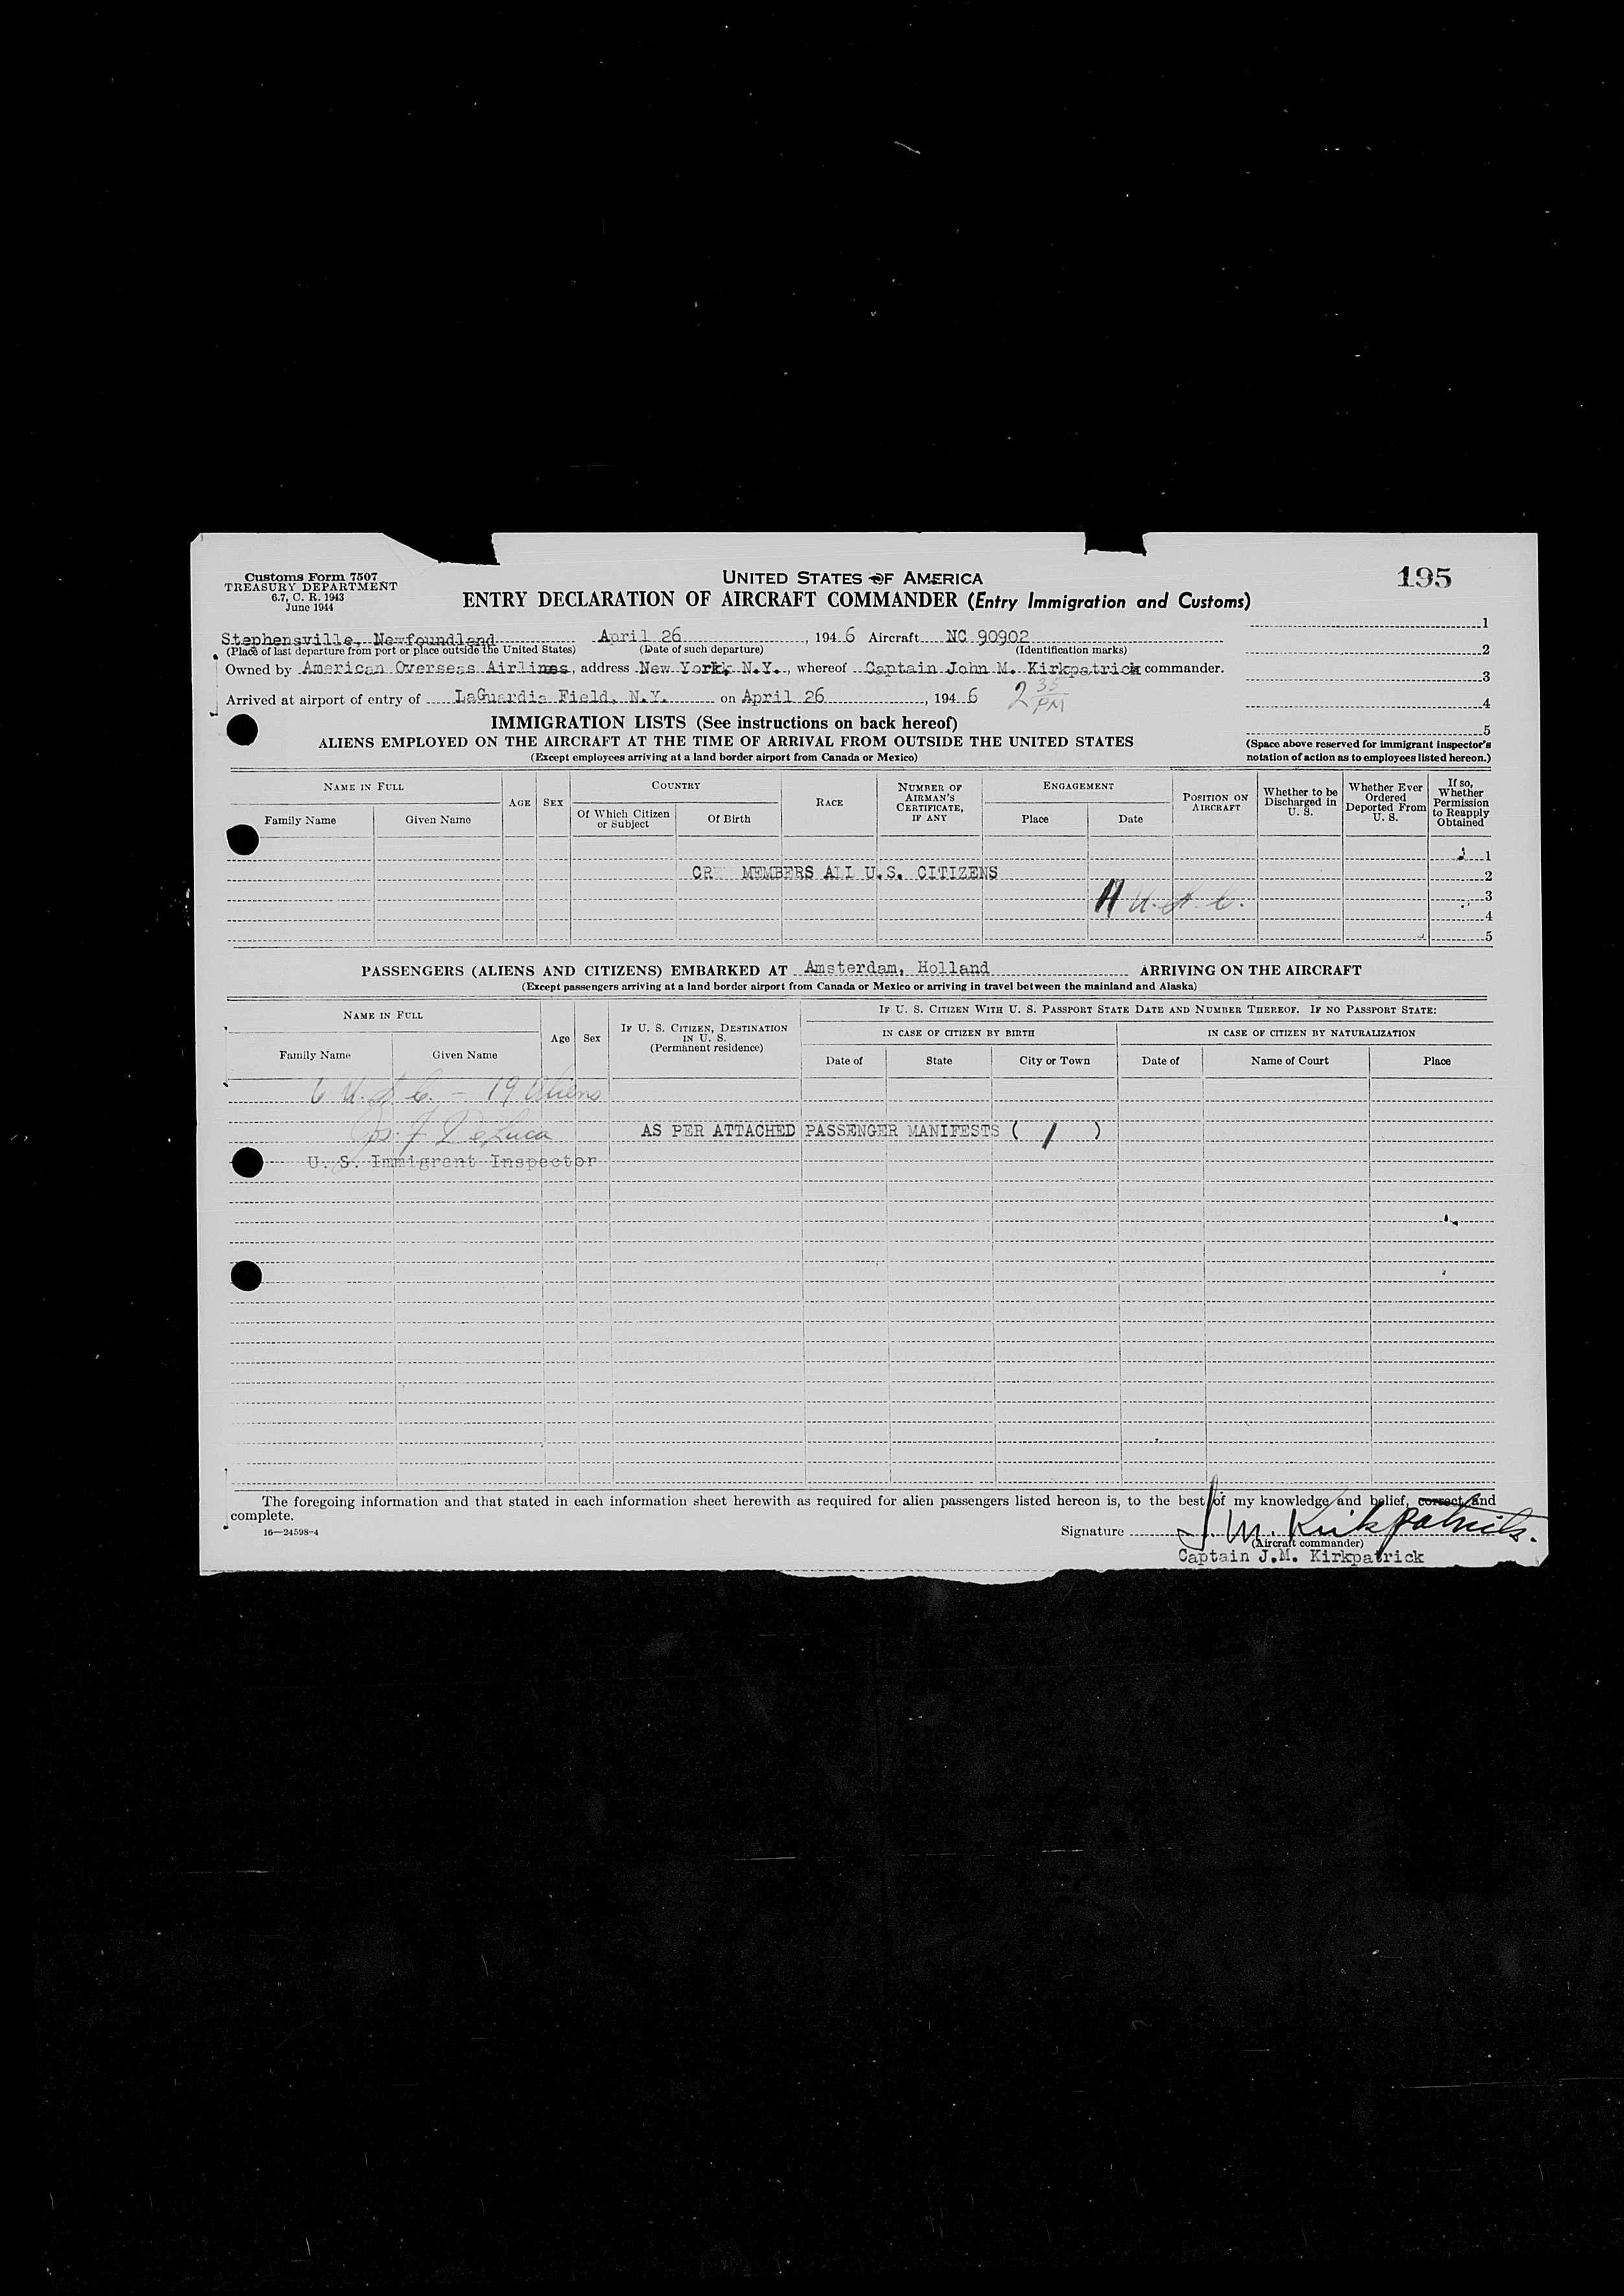 Customs Form 7507
TREASURY DEPARTMENT
6.7, C. R. 1943
June 1944
UNITED STATES OF AMERICA
195
ENTRY DECLARATION OF AIRCRAFT COMMANDER (Entry Immigration and Customs)
Stephensville, Newfoundland April 26, 1946 Aircraft NC 90902
(Place of last departure from port or place outside the United States) (Date of such departure) (Identification marks)
Owned by American Overseas Airlines, address New York, N.Y., whereof Captain John M. Kirkpatrick commander.
Arrived at airport of entry of LaGuardia Field, N.Y. on April 26, 1946 2 35 PM
1
2
3
4
5
(Space above reserved for immigrant inspector's notation of action as to employees listed hereon.)
IMMIGRATION LISTS (See instructions on back hereof)
ALIENS EMPLOYED ON THE AIRCRAFT AT THE TIME OF ARRIVAL FROM OUTSIDE THE UNITED STATES
(Except employees arriving at a land border airport from Canada or Mexico)
NAME IN FULL
Family Name
Given Name
AGE
SEX
COUNTRY
Of Which Citizen or Subject
Of Birth
RACE
NUMBER OF AIRMAN'S CERTIFICATE, IF ANY
ENGAGEMENT
Place
Date
POSITION ON AIRCRAFT
Whether to be Discharged in U. S.
Whether Ever Ordered Deported From U. S.
If so, Whether Permission to Reapply Obtained
1
CR MEMBERS ALL U.S. CITIZENS 2
11 U.S.C. 3
4
5
PASSENGERS (ALIENS AND CITIZENS) EMBARKED AT Amsterdam, Holland ARRIVING ON THE AIRCRAFT
(Except passengers arriving at a land border airport from Canada or Mexico or arriving in travel between the mainland and Alaska)
NAME IN FULL
Family Name
Given Name
Age
Sex
IF U. S. CITIZEN, DESTINATION IN U. S.
(Permanent residence)
IF U. S. CITIZEN WITH U. S. PASSPORT STATE DATE AND NUMBER THEREOF. IF NO PASSPORT STATE:
IN CASE OF CITIZEN BY BIRTH
Date of
State
City or Town
IN CASE OF CITIZEN BY NATURALIZATION
Date of
Name of Court
Place
6 U.S.C. - 19 Aliens
Jos. F. DeLuca
AS PER ATTACHED PASSENGER MANIFESTS ( 1 )
U. S. Immigrant Inspector
The foregoing information and that stated in each information sheet herewith as required for alien passengers listed hereon is, to the best of my knowledge and belief, correct and
complete.
16—24598-4
Signature J. M. Kirkpatrick
(Aircraft commander)
Captain J.M. Kirkpatrick